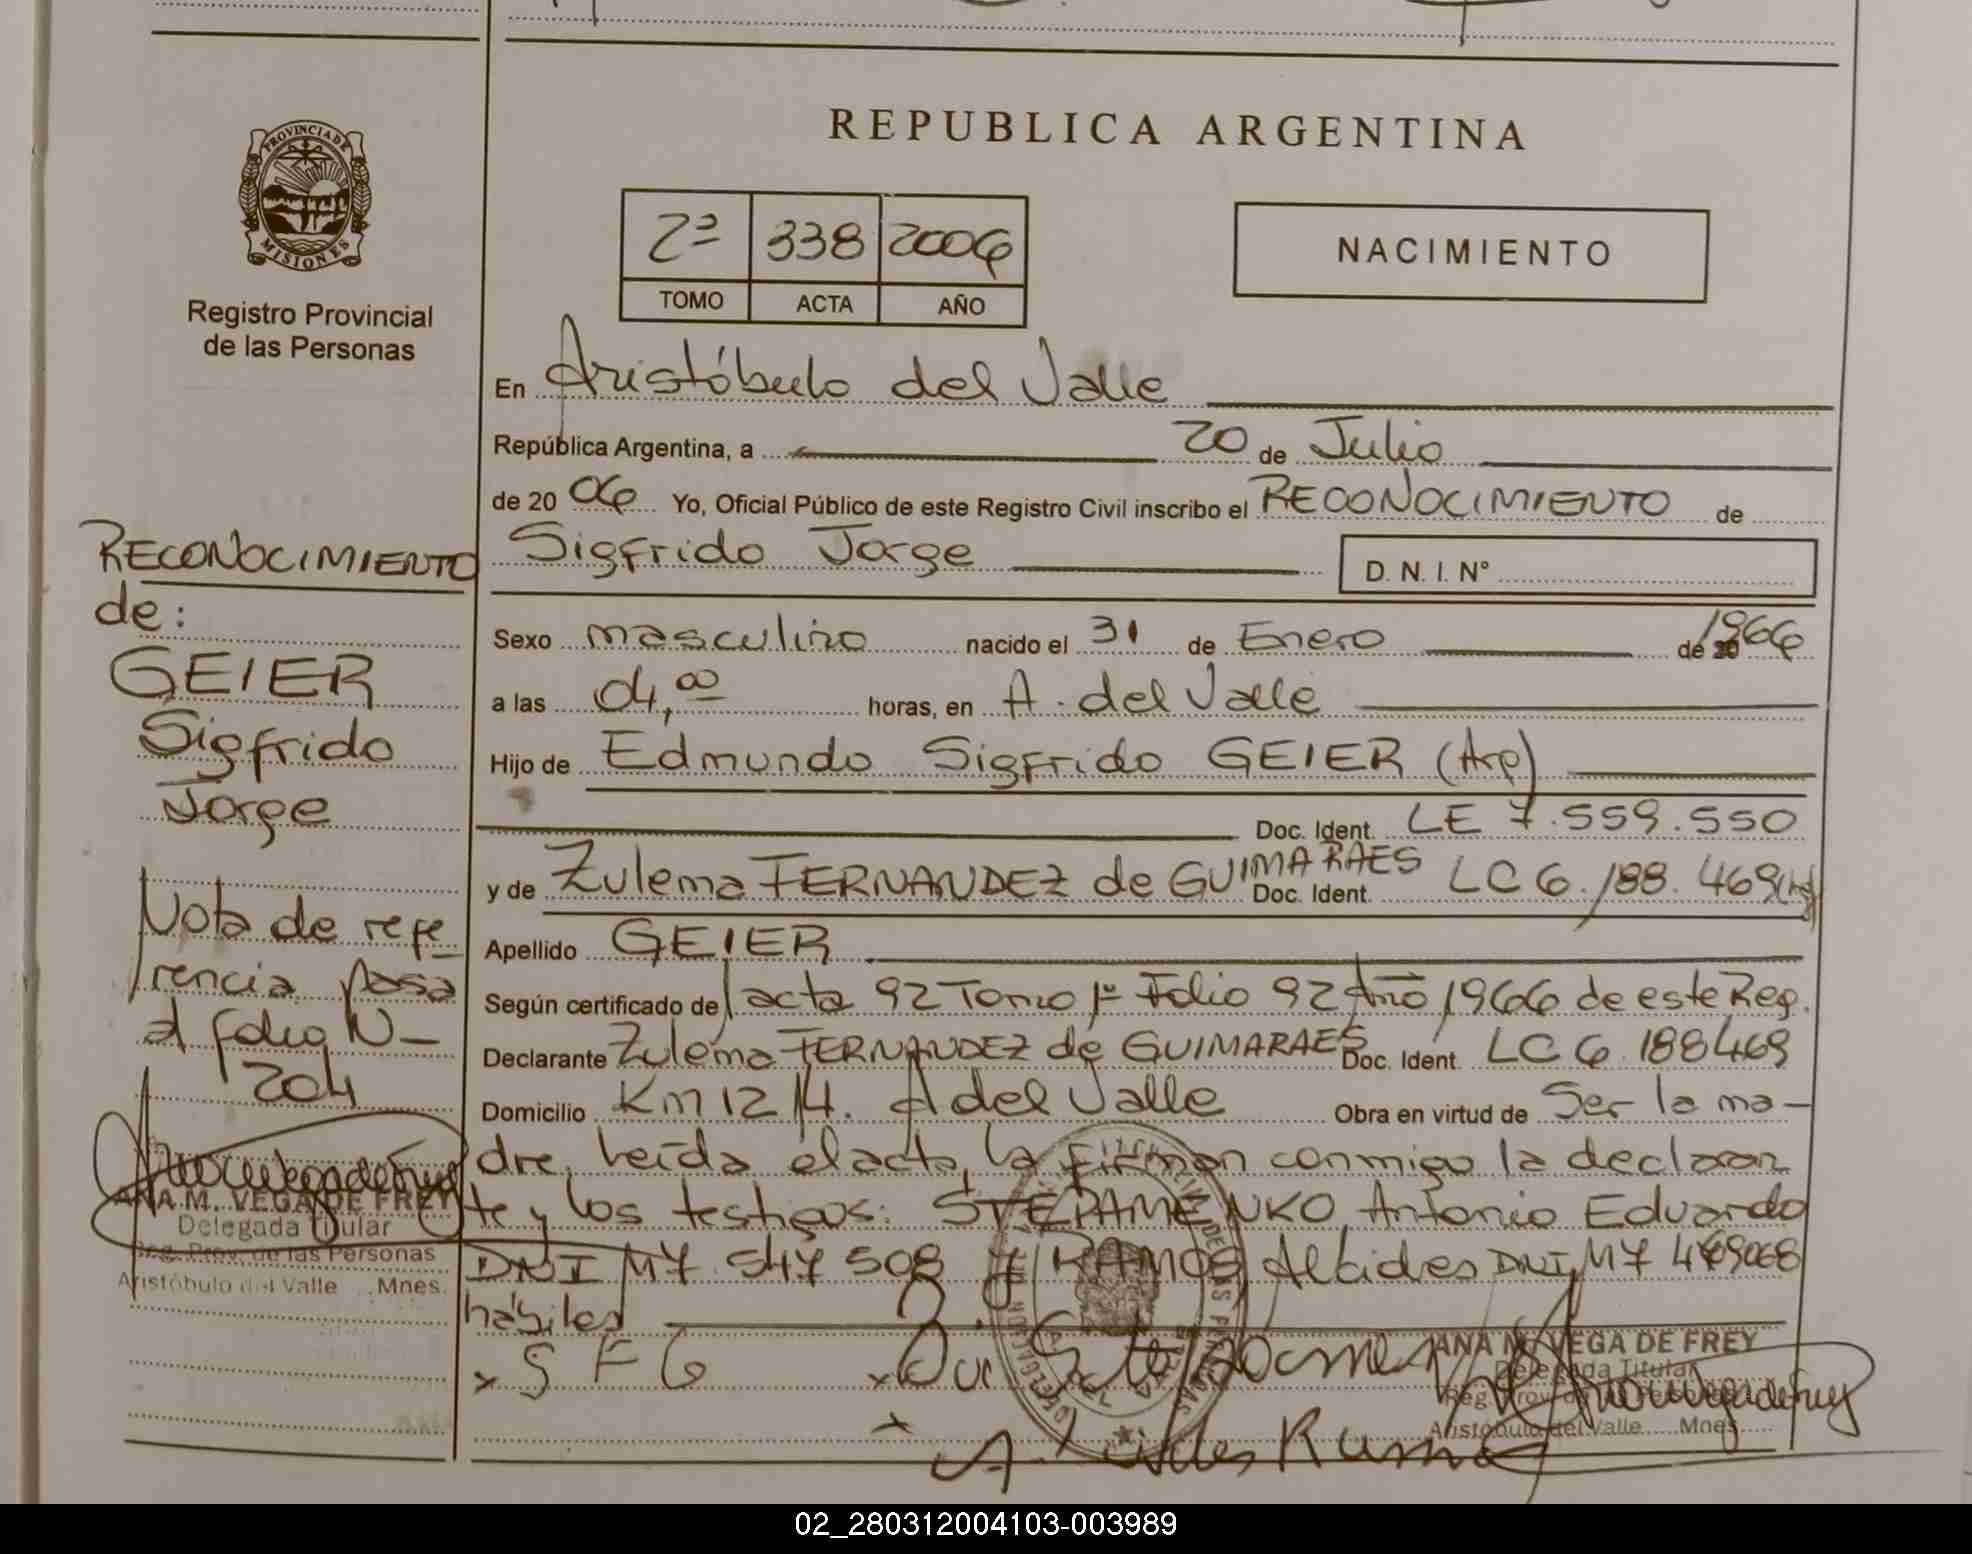 REPUBLICA ARGENTINA
PROVINCIA DE
MISIONES
Registro Provincial
de las Personas
2ª 338 2006
TOMO ACTA AÑO
NACIMIENTO
En Aristóbulo del Valle
República Argentina, a 20 de Julio
de 20 06 Yo, Oficial Público de este Registro Civil inscribo el RECONOCIMIENTO de
Sigfrido Jorge D. N. I. N°
Sexo masculino nacido el 31 de Enero de 1966
a las 04,00 horas, en A. del Valle
Hijo de Edmundo Sigfrido GEIER (Arg)
Doc. Ident. LE 7.559.550
y de Zulema FERNANDEZ de GUIMARAES Doc. Ident. LC 6.188.469 (Arg)
Apellido GEIER
Según certificado de acta 92 Tomo 1º Folio 92 Año 1966 de este Reg.
Declarante Zulema FERNANDEZ de GUIMARAES Doc. Ident. LC 6.188469
Domicilio Km 1214. A del Valle Obra en virtud de Ser la ma-
dre, leída el acta, la firman conmigo la declaran
te y los testigos: STEPAMENKO, Antonio Eduardo
DNI M7.547.508 y RAMOS Alcides DNI M7 469068
hábiles
x S F G x
ANA M. VEGA DE FREY
Delegada Titular
Reg. Prov. de las Personas
Aristóbulo del Valle Mnes.
x Alcides Ramos
RECONOCIMIENTO
de:
GEIER
Sigfrido
Jorge
Nota de refe
rencia pasa
al folio N-
204
ANA M. VEGA DE FREY
Delegada Titular
Reg. Prov. de las Personas
Aristóbulo del Valle Mnes.
02_280312004103-003989